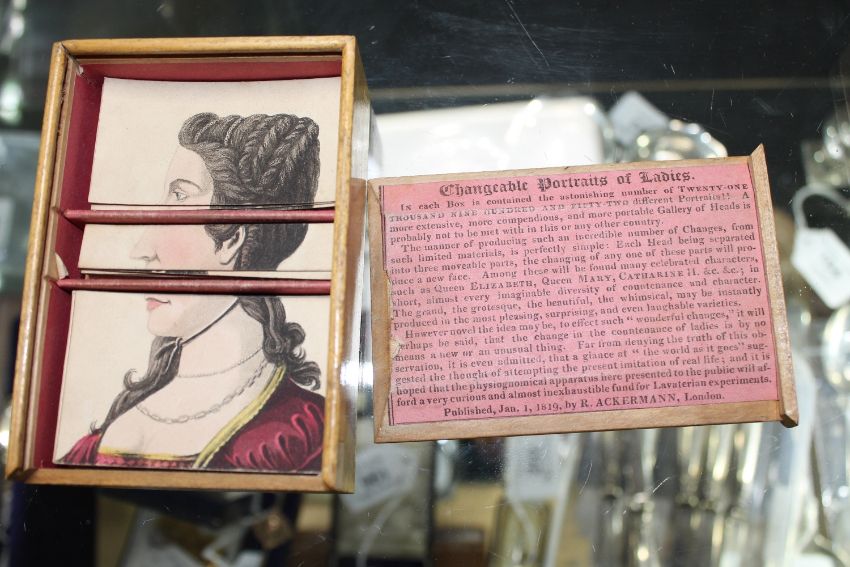 Changeable Portraits of Ladies.
IN each Box is contained the astonishing number of TWENTY-ONE
THOUSAND NINE HUNDRED AND FIFTY-TWO different Portraits!! A
more extensive, more compendious, and more portable Gallery of Heads is
probably not to be met with in this or any other country.
The manner of producing such an incredible number of Changes, from
such limited materials, is perfectly simple: Each Head being separated
into three moveable parts, the changing of any one of these parts will pro-
duce a new face. Among these will be found many celebrated characters,
such as Queen ELIZABETH, Queen MARY, CATHARINE II. &c. &c.; in
short, almost every imaginable diversity of countenance and character.
The grand, the grotesque, the beautiful, the whimsical, may be instantly
produced in the most pleasing, surprising, and even laughable varieties.
However novel the idea may be, to effect such "wonderful changes," it will
perhaps be said, that the change in the countenance of ladies is by no
means a new or an unusual thing. Far from denying the truth of this ob-
servation, it is even admitted, that a glance at "the world as it goes" sug-
gested the thought of attempting the present imitation of real life; and it is
hoped that the physiognomical apparatus here presented to the public will af-
ford a very curious and almost inexhaustible fund for Lavaterian experiments.
Published, Jan. 1, 1819, by R. ACKERMANN, London.